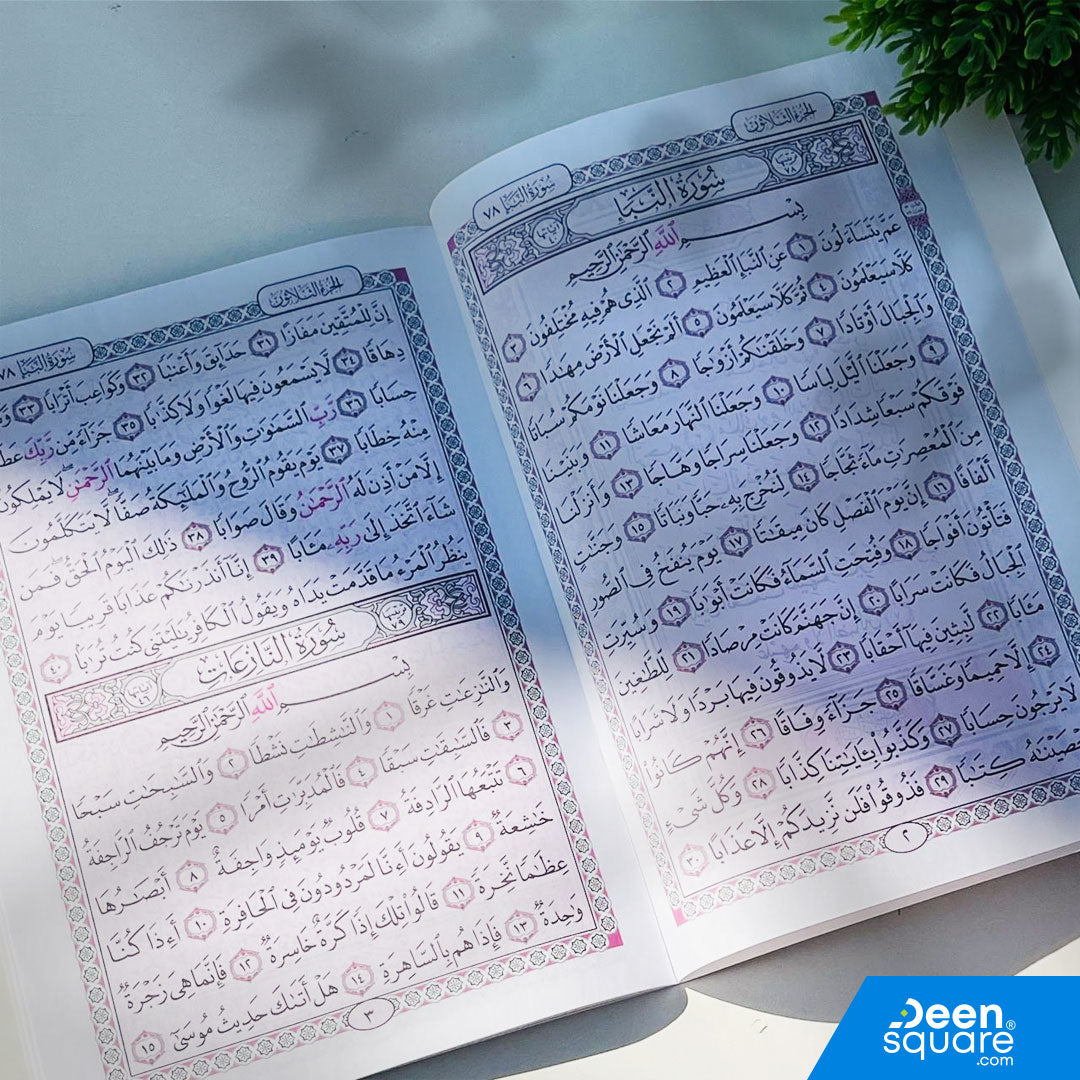 الجزء الثلاثون
سُورَةُ النَّبَإِ ٧٨
سُورَةُ النَّبَإِ
بِسْمِ ٱللَّهِ ٱلرَّحْمَٰنِ ٱلرَّحِيمِ
عَمَّ يَتَسَآءَلُونَ ١ عَنِ ٱلنَّبَإِ ٱلْعَظِيمِ ٢ ٱلَّذِى هُمْ فِيهِ مُخْتَلِفُونَ ٣
كَلَّا سَيَعْلَمُونَ ٤ ثُمَّ كَلَّا سَيَعْلَمُونَ ٥ أَلَمْ نَجْعَلِ ٱلْأَرْضَ مِهَٰدًا ٦
وَٱلْجِبَالَ أَوْتَادًا ٧ وَخَلَقْنَٰكُمْ أَزْوَٰجًا ٨ وَجَعَلْنَا نَوْمَكُمْ سُبَاتًا
٩ وَجَعَلْنَا ٱلَّيْلَ لِبَاسًا ١٠ وَجَعَلْنَا ٱلنَّهَارَ مَعَاشًا ١١ وَبَنَيْنَا
فَوْقَكُمْ سَبْعًا شِدَادًا ١٢ وَجَعَلْنَا سِرَاجًا وَهَّاجًا ١٣ وَأَنزَلْنَا
مِنَ ٱلْمُعْصِرَٰتِ مَآءً ثَجَّاجًا ١٤ لِّنُخْرِجَ بِهِۦ حَبًّا وَنَبَاتًا ١٥ وَجَنَّٰتٍ
أَلْفَافًا ١٦ إِنَّ يَوْمَ ٱلْفَصْلِ كَانَ مِيقَٰتًا ١٧ يَوْمَ يُنفَخُ فِى ٱلصُّورِ
فَتَأْتُونَ أَفْوَاجًا ١٨ وَفُتِحَتِ ٱلسَّمَآءُ فَكَانَتْ أَبْوَٰبًا ١٩ وَسُيِّرَتِ
ٱلْجِبَالُ فَكَانَتْ سَرَابًا ٢٠ إِنَّ جَهَنَّمَ كَانَتْ مِرْصَادًا ٢١ لِّلطَّٰغِينَ
مَـَٔابًا ٢٢ لَّٰبِثِينَ فِيهَآ أَحْقَابًا ٢٣ لَّا يَذُوقُونَ فِيهَا بَرْدًا وَلَا شَرَابًا
٢٤ إِلَّا حَمِيمًا وَغَسَّاقًا ٢٥ جَزَآءً وِفَاقًا ٢٦ إِنَّهُمْ كَانُوا۟
لَا يَرْجُونَ حِسَابًا ٢٧ وَكَذَّبُوا۟ بِـَٔايَٰتِنَا كِذَّابًا ٢٨ وَكُلَّ شَىْءٍ
أَحْصَيْنَٰهُ كِتَٰبًا ٢٩ فَذُوقُوا۟ فَلَن نَّزِيدَكُمْ إِلَّا عَذَابًا ٣٠
٢
الجزء الثلاثون
سُورَةُ النَّبَإِ ٧٨
إِنَّ لِلْمُتَّقِينَ مَفَازًا ٣١ حَدَآئِقَ وَأَعْنَٰبًا ٣٢ وَكَوَاعِبَ أَتْرَابًا ٣٣
دِهَاقًا ٣٤ لَّا يَسْمَعُونَ فِيهَا لَغْوًا وَلَا كِذَّٰبًا ٣٥ جَزَآءً مِّن رَّبِّكَ
حِسَابًا ٣٦ رَّبِّ ٱلسَّمَٰوَٰتِ وَٱلْأَرْضِ وَمَا بَيْنَهُمَا ٱلرَّحْمَٰنِ لَا يَمْلِكُونَ
مِنْهُ خِطَابًا ٣٧ يَوْمَ يَقُومُ ٱلرُّوحُ وَٱلْمَلَٰٓئِكَةُ صَفًّا لَّا يَتَكَلَّمُونَ
إِلَّا مَنْ أَذِنَ لَهُ ٱلرَّحْمَٰنُ وَقَالَ صَوَابًا ٣٨ ذَٰلِكَ ٱلْيَوْمُ ٱلْحَقُّ فَمَن
شَآءَ ٱتَّخَذَ إِلَىٰ رَبِّهِۦ مَـَٔابًا ٣٩ إِنَّآ أَنذَرْنَٰكُمْ عَذَابًا قَرِيبًا يَوْمَ
يَنظُرُ ٱلْمَرْءُ مَا قَدَّمَتْ يَدَاهُ وَيَقُولُ ٱلْكَافِرُ يَٰلَيْتَنِى كُنتُ تُرَٰبًۢا ٤٠
سُورَةُ النَّازِعَاتِ
بِسْمِ ٱللَّهِ ٱلرَّحْمَٰنِ ٱلرَّحِيمِ
وَٱلنَّٰزِعَٰتِ غَرْقًا ١ وَٱلنَّٰشِطَٰتِ نَشْطًا ٢ وَٱلسَّٰبِحَٰتِ سَبْحًا
٣ فَٱلسَّٰبِقَٰتِ سَبْقًا ٤ فَٱلْمُدَبِّرَٰتِ أَمْرًا ٥ يَوْمَ تَرْجُفُ ٱلرَّاجِفَةُ
٦ تَتْبَعُهَا ٱلرَّادِفَةُ ٧ قُلُوبٌ يَوْمَئِذٍ وَاجِفَةٌ ٨ أَبْصَٰرُهَا
خَٰشِعَةٌ ٩ يَقُولُونَ أَءِنَّا لَمَرْدُودُونَ فِى ٱلْحَافِرَةِ ١٠ أَءِذَا كُنَّا
عِظَٰمًا نَّخِرَةً ١١ قَالُوا۟ تِلْكَ إِذًا كَرَّةٌ خَاسِرَةٌ ١٢ فَإِنَّمَا هِىَ زَجْرَةٌ
وَٰحِدَةٌ ١٣ فَإِذَا هُم بِٱلسَّاهِرَةِ ١٤ هَلْ أَتَىٰكَ حَدِيثُ مُوسَىٰٓ ١٥
٣
Deen
square®
.com